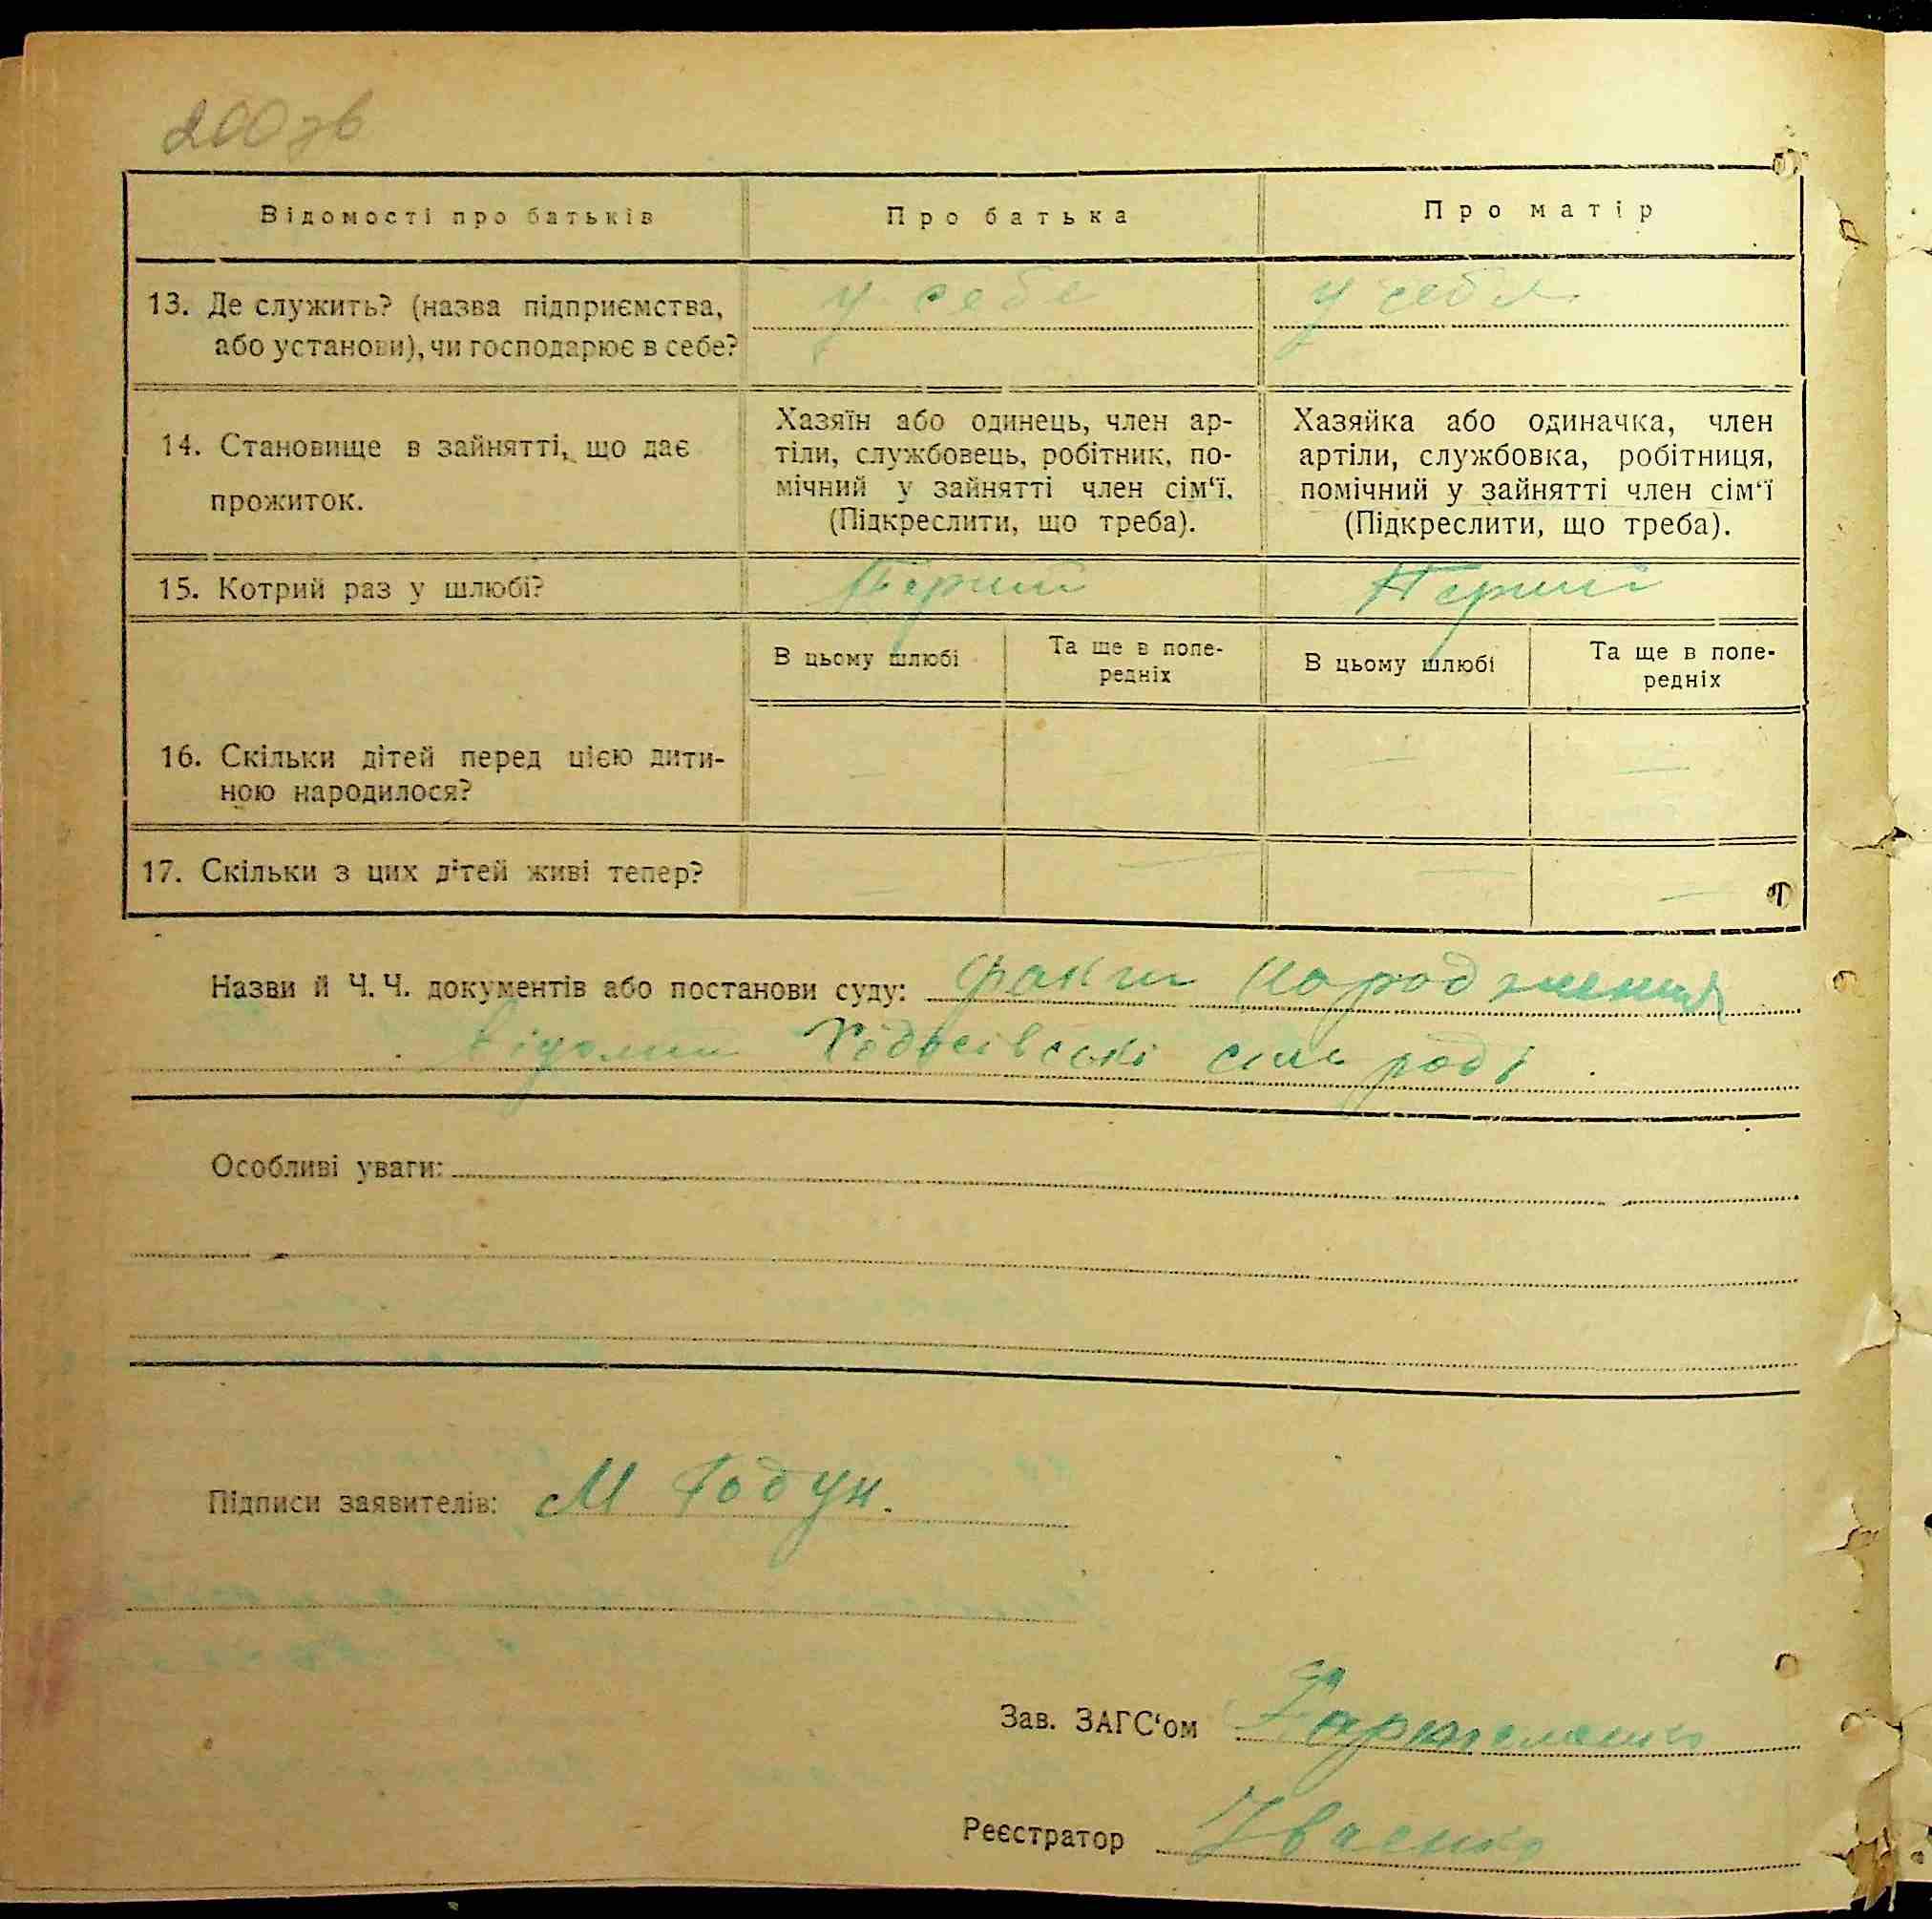 200 зв
Відомості про батьків
Про батька
Про матір
13. Де служить? (назва підприємства,
або установи), чи господарює в себе?
у себе
у себя
14. Становище в зайнятті, що дає
прожиток.
Хазяїн або одинець, член ар-
тіли, службовець, робітник, по-
мічний у зайнятті член сім‘ї.
(Підкреслити, що треба).
Хазяйка або одиначка, член
артіли, службовка, робітниця,
помічний у зайнятті член сім‘ї
(Підкреслити, що треба).
15. Котрий раз у шлюбі?
В цьому шлюбі
Та ще в попе-
редніх
В цьому шлюбі
Та ще в попе-
редніх
16. Скільки дітей перед цією дити-
ною народилося?
— — — —
17. Скільки з цих дітей живі тепер?
— — — —
Назви й Ч. Ч. документів або постанови суду: факт народження
Ходосівські сіль раді
Особливі уваги:
Підписи заявителів: М Годун.
Зав. ЗАГС‘ом
Реєстратор Іваенко